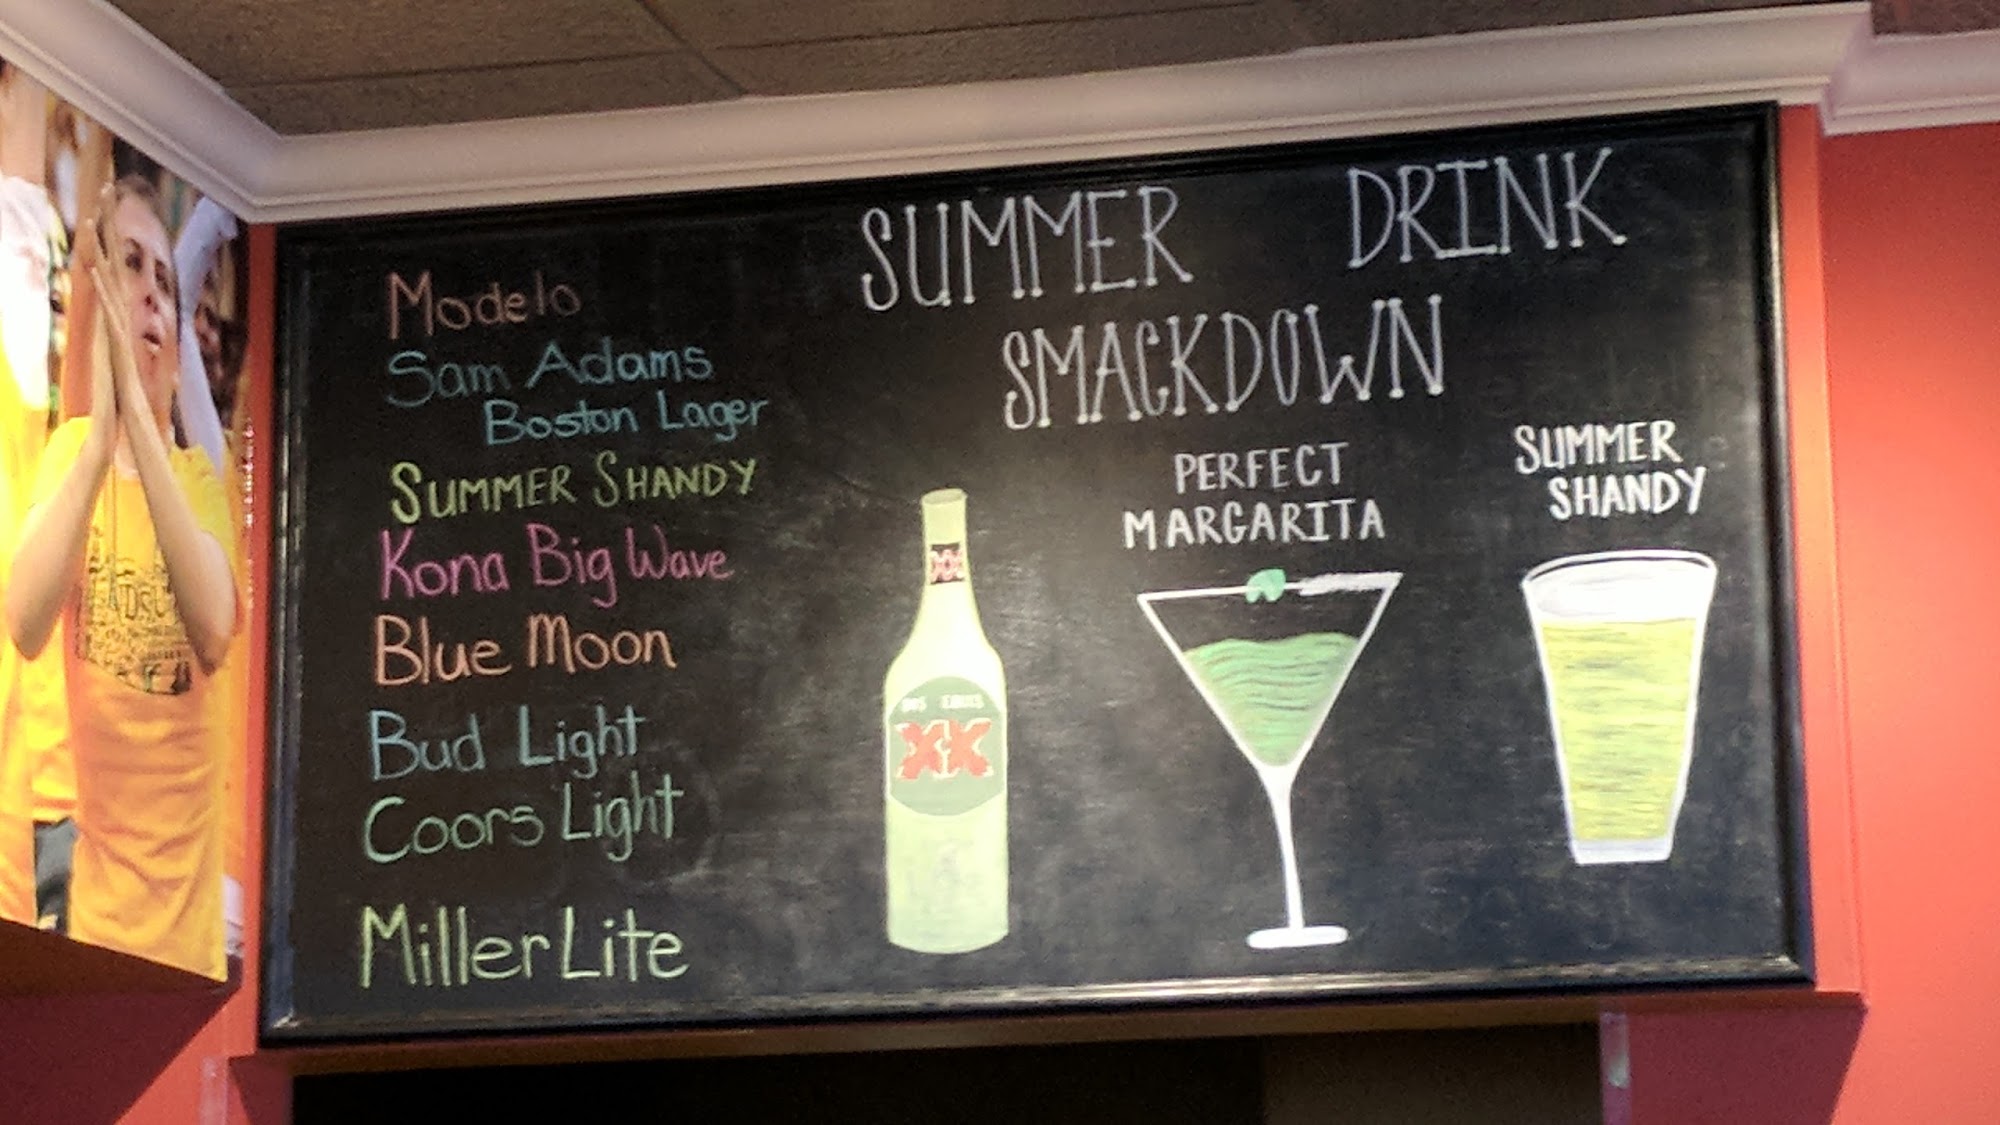 Modelo
Sam Adams
Boston Lager
SUMMER SHANDY
Kona Big Wave
Blue Moon
Bud Light
Coors Light
Miller Lite
SUMMER DRINK
SMACKDOWN
XX
DOS EQUIS
XX
PERFECT
MARGARITA
SUMMER
SHANDY